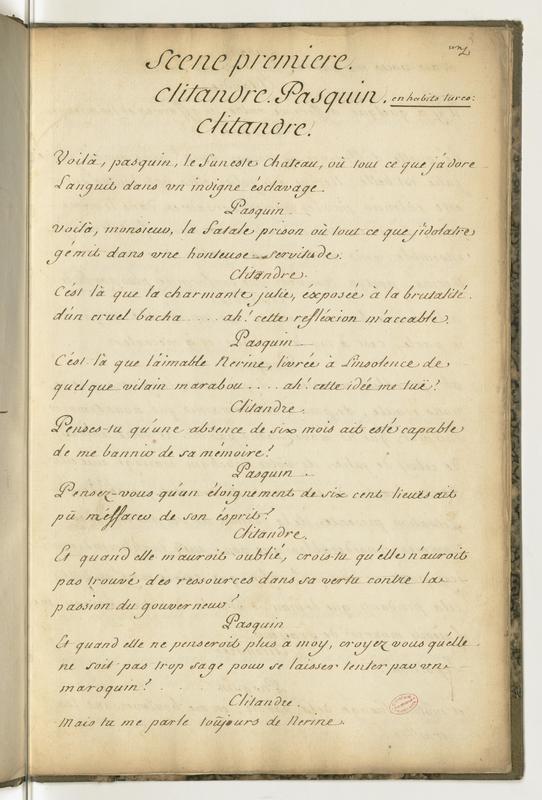 un
Scene premiere.
Clitandre. Pasquin. en habits turcs:
Clitandre.
Voilà, pasquin, le funeste chateau, où tout ce que j'adore
Languit dans un indigne ésclavage.
Pasquin
Voilà, monsieur, la fatale prison où tout ce que j'idolatre
gémit dans une honteuse servitude.
Clitandre.
C'ést là que la charmante julie, éxposée à la brutalité
d'un cruel bacha .... ah! cette refléxion m'accable
Pasquin
C'ést là que l'aimable Nerine, livrée à l'insolence de
quelque vilain marabou .... ah! cette idée me tuë!
Clitandre.
Penses-tu qu'une absence de six mois ait esté capable
de me bannir de sa mémoire?
Pasquin
Pensez-vous qu'un éloignement de six cent lieuës ait
pû m'éffacer de son ésprit?
Clitandre.
Et quand elle m'auroit oublié, crois-tu qu'elle n'auroit
pas trouvé des ressources dans sa vertu contre la
passion du gouverneur?
Pasquin
Et quand elle ne penseroit plus à moy, croyez vous qu'elle
ne soit pas trop sage pour se laisser tenter par un
maroquin?
Clitandre.
Mais tu me parle toûjours de Nerine